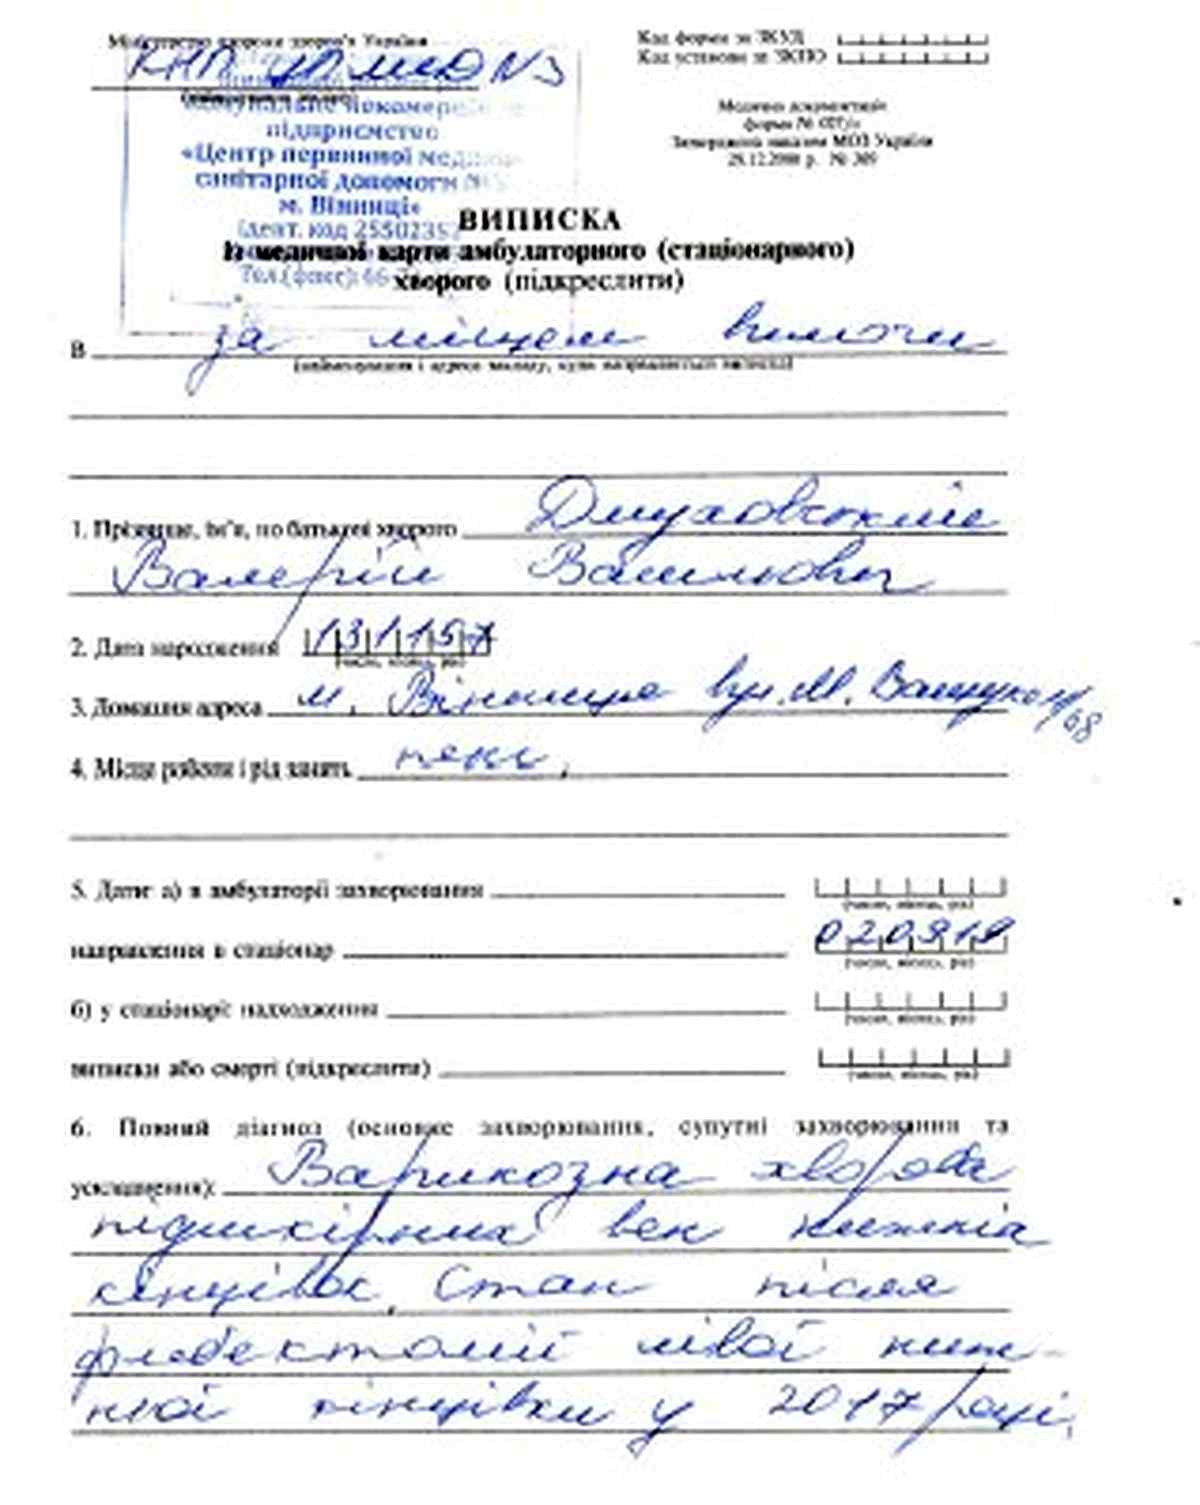 Міністерство охорони здоров'я України
Код форми за ЗКУД
КНП ЦПМСД №3
Код установи за ЗКПО
Комунальне некомерційне
підприємство
«Центр первинної медико-
санітарної допомоги №3
м. Вінниці»
Ідент. код 2550235
Тел.(факс): 66
Медична документація
форма № 027/о
Затверджена наказом МОЗ України
№ 369
ВИПИСКА
із медичної карти амбулаторного (стаціонарного)
хворого (підкреслити)
В за місцем вимоги
(найменування і адреса закладу, куди направляється виписка)
1. Прізвище, ім'я, по батькові хворого Дмуховський
Валерій Васильович
2. Дата народження 131157
(число, місяць, рік)
3. Домашня адреса м. Вінниця вул. М. Ващука 68
4. Місце роботи і рід занять пенс.
5. Дати: а) в амбулаторії: захворювання
(число, місяць, рік)
направлення в стаціонар 020919
(число, місяць, рік)
б) у стаціонарі: надходження
(число, місяць, рік)
виписки або смерті (підкреслити)
(число, місяць, рік)
6. Повний діагноз (основне захворювання, супутні захворювання та
ускладнення): Варикозна хвороба
підшкірних вен нижніх
кінцівок. Стан після
флебектомії лівої ниж-
ньої кінцівки у 2017 році.